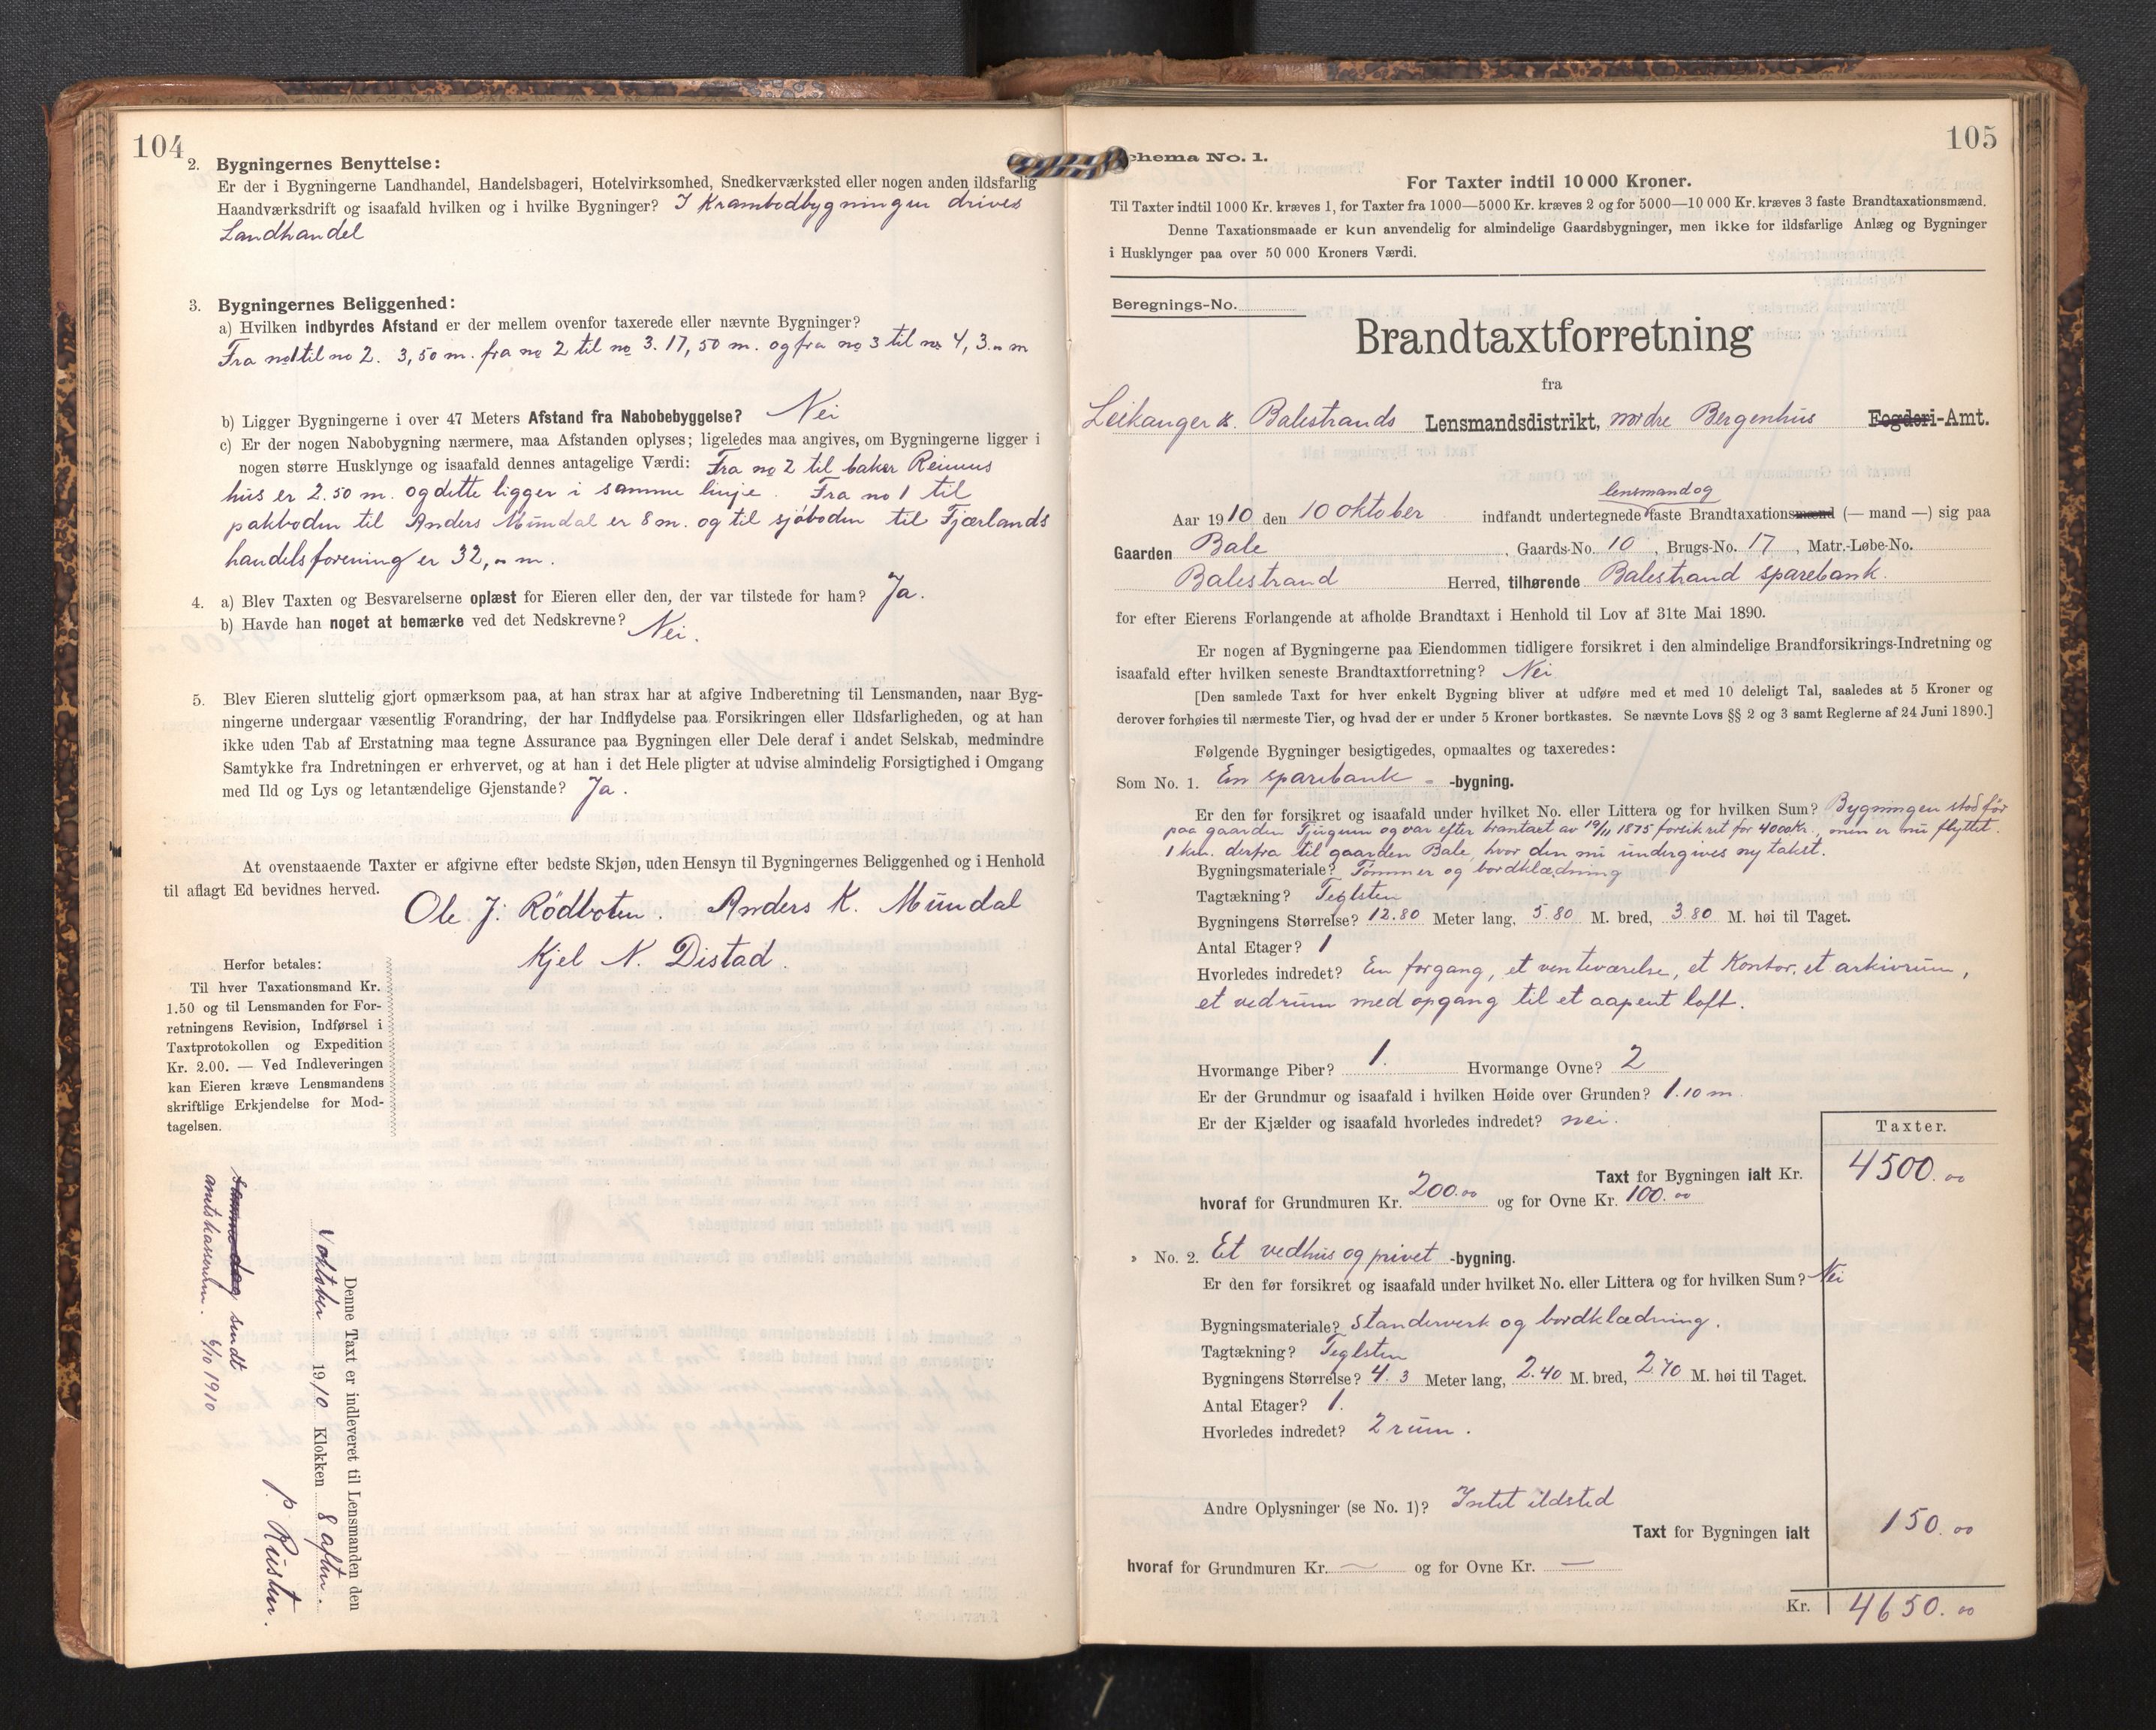 104
2. Bygningernes Benyttelse:
Er der i Bygningerne Landhandel, Handelsbageri, Hotelvirksomhed, Snedkerværksted eller nogen anden ildsfarlig
Haandværksdrift og isaafald hvilken og i hvilke Bygninger? I Krambodbygningen drives
Landhandel
3. Bygningernes Beliggenhed:
a) Hvilken indbyrdes Afstand er der mellem ovenfor taxerede eller nævnte Bygninger?
Fra no 1 til no 2. 3,50 m. fra no 2 til no 3. 17,50 m. og fra no 3 til no 4, 3.„ m
b) Ligger Bygningerne i over 47 Meters Afstand fra Nabobebyggelse? Nei
c) Er der nogen Nabobygning nærmere, maa Afstanden oplyses; ligeledes maa angives, om Bygningerne ligger i
nogen større Husklynge og isaafald dennes antagelige Værdi: Fra no 2 til baker Reimers
hus er 2.50 m. og dette ligger i samme linje. Fra no 1 til
pakboden til Anders Mundal er 8 m. og til sjøboden til Fjærlands
handelsforening er 32,„ m.
4. a) Blev Taxten og Besvarelserne oplæst for Eieren eller den, der var tilstede for ham? Ja.
b) Havde han noget at bemærke ved det Nedskrevne? Nei.
5. Blev Eieren sluttelig gjort opmærksom paa, at han strax har at afgive Indberetning til Lensmanden, naar Byg-
ningerne undergaar væsentlig Forandring, der har Indflydelse paa Forsikringen eller Ildsfarligheden, og at han
ikke uden Tab af Erstatning maa tegne Assurance paa Bygningen eller Dele deraf i andet Selskab, medmindre
Samtykke fra Indretningen er erhvervet, og at han i det Hele pligter at udvise almindelig Forsigtighed i Omgang
med Ild og Lys og letantændelige Gjenstande? Ja.
At ovenstaaende Taxter er afgivne efter bedste Skjøn, uden Hensyn til Bygningernes Beliggenhed og i Henhold
til aflagt Ed bevidnes herved.
Ole J. Rödboten. Anders K. Mundal
Kjel N. Distad.
Herfor betales:
Til hver Taxationsmand Kr.
1.50 og til Lensmanden for For-
retningens Revision, Indførsel i
Taxtprotokollen og Expedition
Kr. 2.00. — Ved Indleveringen
kan Eieren kræve Lensmandens
skriftlige Erkjendelse for Mod-
tagelsen.
Denne Taxt er indleveret til Lensmanden den
oktober 1910 Klokken 8 aften.
samme dag sendt
amtskassereren. 6/10 1910
105
Schema No. 1.
For Taxter indtil 10 000 Kroner.
Til Taxter indtil 1000 Kr. kræves 1, for Taxter fra 1000—5000 Kr. kræves 2 og for 5000—10 000 Kr. kræves 3 faste Brandtaxationsmænd.
Denne Taxationsmaade er kun anvendelig for almindelige Gaardsbygninger, men ikke for ildsfarlige Anlæg og Bygninger
i Husklynger paa over 50 000 Kroners Værdi.
Beregnings-No.
Brandtaxtforretning
fra
Leikanger & Balestrands Lensmandsdistrikt, nordre Bergenhus Fogderi-Amt.
lensmand og
Aar 1910 den 10 oktober indfandt undertegnede faste Brandtaxationsmænd (— mand —) sig paa
Gaarden Bale, Gaards-No. 10, Brugs-No. 17, Matr.-Løbe-No.
Balestrand Herred, tilhørende Balestrand sparebank.
for efter Eierens Forlangende at afholde Brandtaxt i Henhold til Lov af 31te Mai 1890.
Er nogen af Bygningerne paa Eiendommen tidligere forsikret i den almindelige Brandforsikrings-Indretning og
isaafald efter hvilken seneste Brandtaxtforretning? Nei
[Den samlede Taxt for hver enkelt Bygning bliver at udføre med et med 10 deleligt Tal, saaledes at 5 Kroner og
derover forhøies til nærmeste Tier, og hvad der er under 5 Kroner bortkastes. Se nævnte Lovs §§ 2 og 3 samt Reglerne af 24 Juni 1890.]
Følgende Bygninger besigtigedes, opmaaltes og taxeredes:
Som No. 1. En sparebank -bygning.
Er den før forsikret og isaafald under hvilket No. eller Littera og for hvilken Sum? Bygningen stod før
paa gaarden Tjugum og var efter brantaxt av 19/11 1875 forsikret for 4000 Kr., men er nu flyttet
1 km. derfra til gaarden Bale, hvor den nu undergives ny takst.
Bygningsmateriale? Tømmer og bordklædning
Tagtækning? Teglsten
Bygningens Størrelse? 12.80 Meter lang, 5.80 M. bred, 3.80 M. høi til Taget.
Antal Etager? 1
Hvorledes indredet? En forgang, et venteværelse, et Kontor, et arkivrum,
et vedrum med opgang til et aapent loft.
Hvormange Piber? 1. Hvormange Ovne? 2
Er der Grundmur og isaafald i hvilken Høide over Grunden? 1.10 m.
Er der Kjælder og isaafald hvorledes indredet? nei.
Taxter.
Taxt for Bygningen ialt Kr. 4500.00
hvoraf for Grundmuren Kr. 200.00 og for Ovne Kr. 100.00
» No. 2. Et vedhus og privet -bygning.
Er den før forsikret og isaafald under hvilket No. eller Littera og for hvilken Sum? Nei
Bygningsmateriale? Standerverk og bordklædning.
Tagtækning? Teglsten
Bygningens Størrelse? 4.3 Meter lang, 2.40 M. bred, 2.70 M. høi til Taget.
Antal Etager? 1.
Hvorledes indredet? 2 rum.
Andre Oplysninger (se No. 1)? Intet ildsted
Taxt for Bygningen ialt 150.00
hvoraf for Grundmuren Kr. — og for Ovne Kr. —
Kr. 4650.00